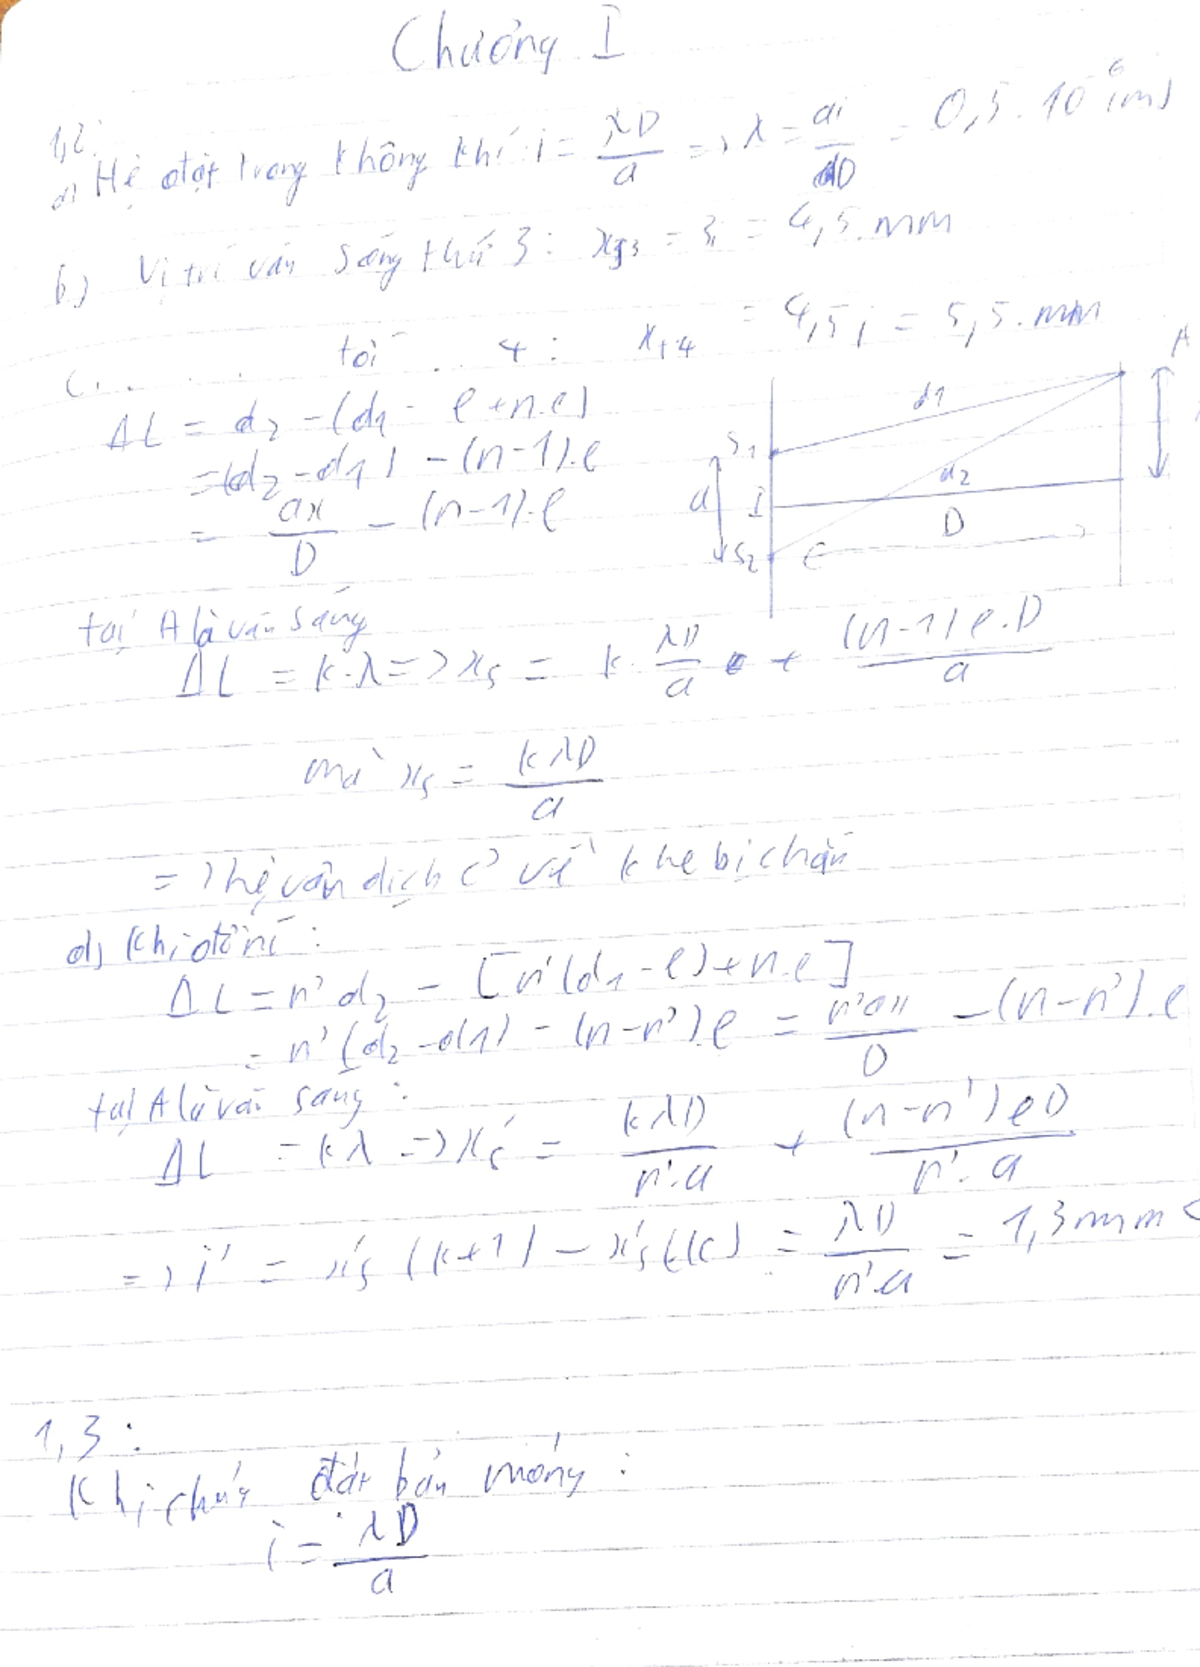 Chương I
1,2.
a) Hệ đặt trong không khí: i = λD/a => λ = ai/D = 0,5.10^6 (m)
b) Vị trí vân sáng thứ 3: xs3 = 3i = 4,5.mm
tối .. 4: xt4 = 4,5i = 5,5.mm
c)
ΔL = d2 - (d1 - e + n.e)
= (d2 - d1) - (n-1).e
= ax/D - (n-1).e
S1 d1 A
a I d2
S2 D
tại A là vân sáng
ΔL = k.λ => xs = k.λD/a + (n-1)e.D/a
mà xs = kλD/a
=> hệ vân dịch c² về khe bị chắn
d) Khi đổ nc:
ΔL = n'd2 - [n'(d1-e)+n.e]
= n'(d2-d1) - (n-n').e = n'ax/D - (n-n').e
tại A là vân sáng:
ΔL = kλ => x's = kλD/n'.a + (n-n')eD/n'.a
=> i' = x's(k+1) - x's(k) = λD/n'.a = 1,3mm <
1,3:
Khi chưa đặt bản mỏng:
i = λD/a